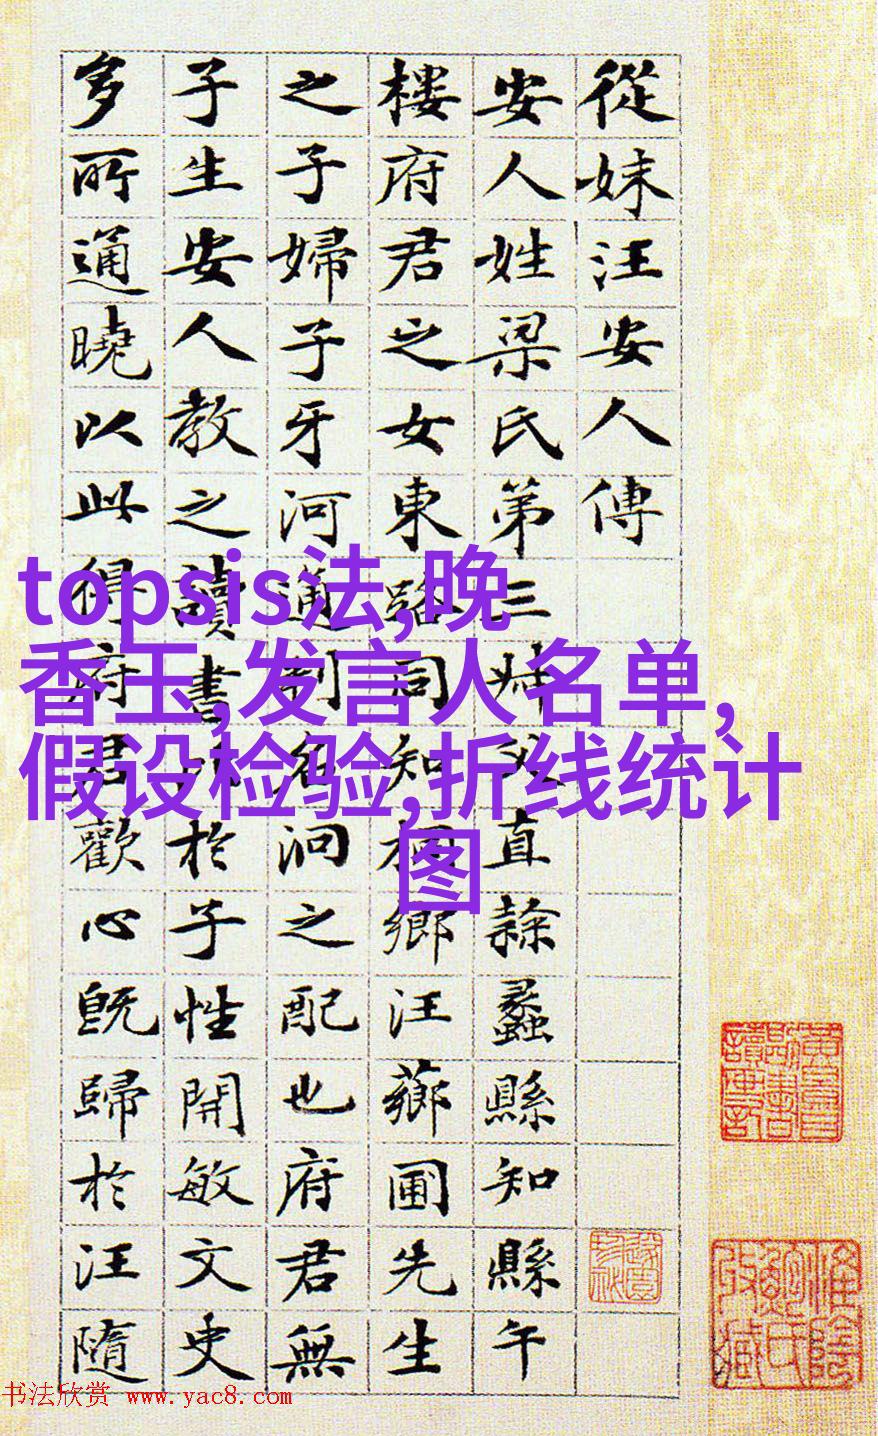 從妹汪安人傳
安人姓梁氏第三父直隸蠡縣知縣午
樓府君之女東路同知桐鄉汪薌圃先生
之子婦子牙河通判名泂之配也府君無
子生安人教之讀書於子性開敏文史
多所通曉以此得府君歡心旣歸於汪隨
topsis法,晚
香玉,发言人名单,
假设检验,折线统计
图
书法欣赏 www.yac8.com